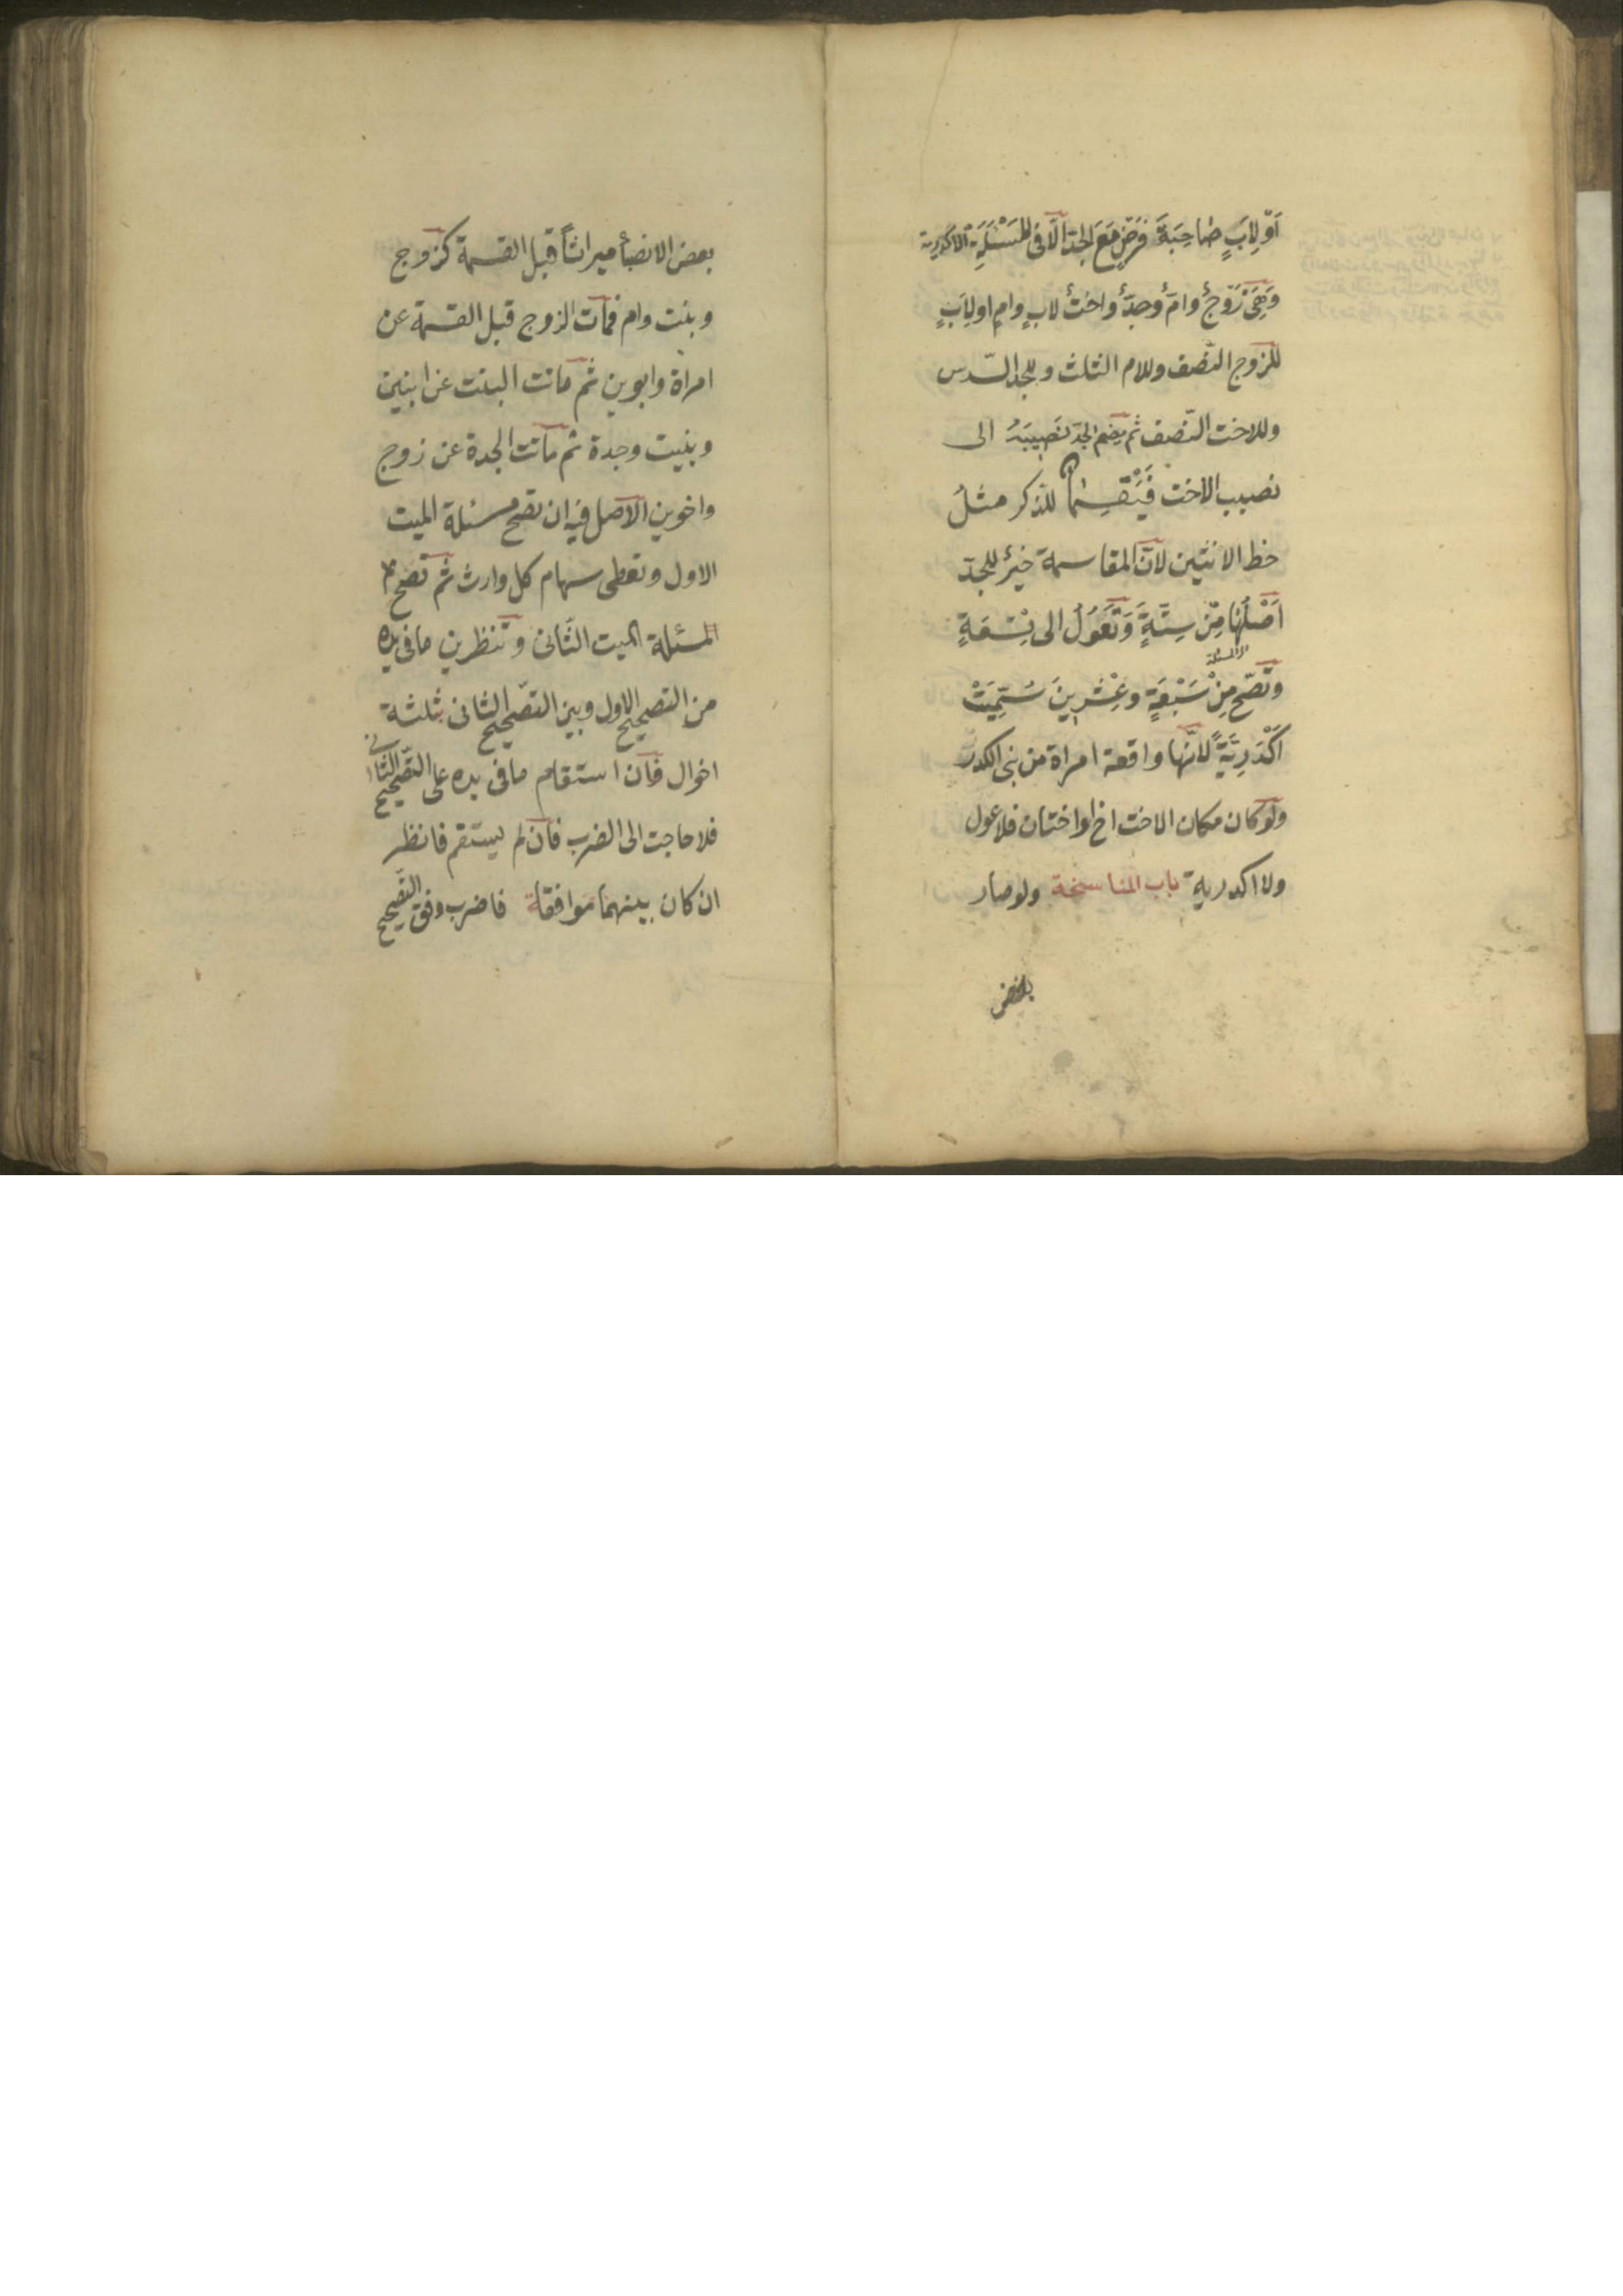 اَوْ لِاَبٍ صَاحِبَةَ فَرْضٍ مَعَ الجدّ الّا فى المَسْئَلَةِ الاكدرية
وَهِىَ زَوْجٌ وامٌ وجدٌّ واختٌ لابٍ وامٍ اولِاَبٍ
للزوج النّصف وللام الثلث وللجد السّدس
وللاخت النّصف ثم يضم الجدّ نَصِيبَهُ الى
نصيب الاخت فَيَقْسِمُ للذكر مثلُ
حظ الانثيين لانّ المقاسمة خيرٌ للجدّ
اَصْلُهَا مِنْ سِتَّةٍ وَتَعُوْلُ الى تِسْعَةٍ
وتَصّح مِنْ سَبْعَةٍ وعِشْرِينَ سُمِّيَتْ
اَكْدَرِيَّةً لانّها واقعة امراة من بنى اكدر
ولو كان مكان الاخت اخ اواختان فلا عول
ولا اكدرية باب المناسخة ولو صار
بعض
بعض الانصبأ ميراثاً قبل القسمة كزوج
وبنت وام فمات الزوج قبل القسمة عن
امراة وابوين ثم ماتت البنت عن ابنين
وبنيت وجدة ثم ماتت الجدة عن زوج
واخوين الاصل فيه ان تصح مسئلة الميت
الاول وتعطى سهام كل وارث ثم تصح
المسئلة الميت الثّانى وتنظر بن مافى يده
من التصحيح الاول وبين التصّحيح الثانى ثلثة
احوال فان استقام مافى يده على التصّحيح الثانى
فلا حاجت الى الضرب فان لم يستقم فانظر
ان كان بينهما موافقة فاضرب وفق التصّحيح